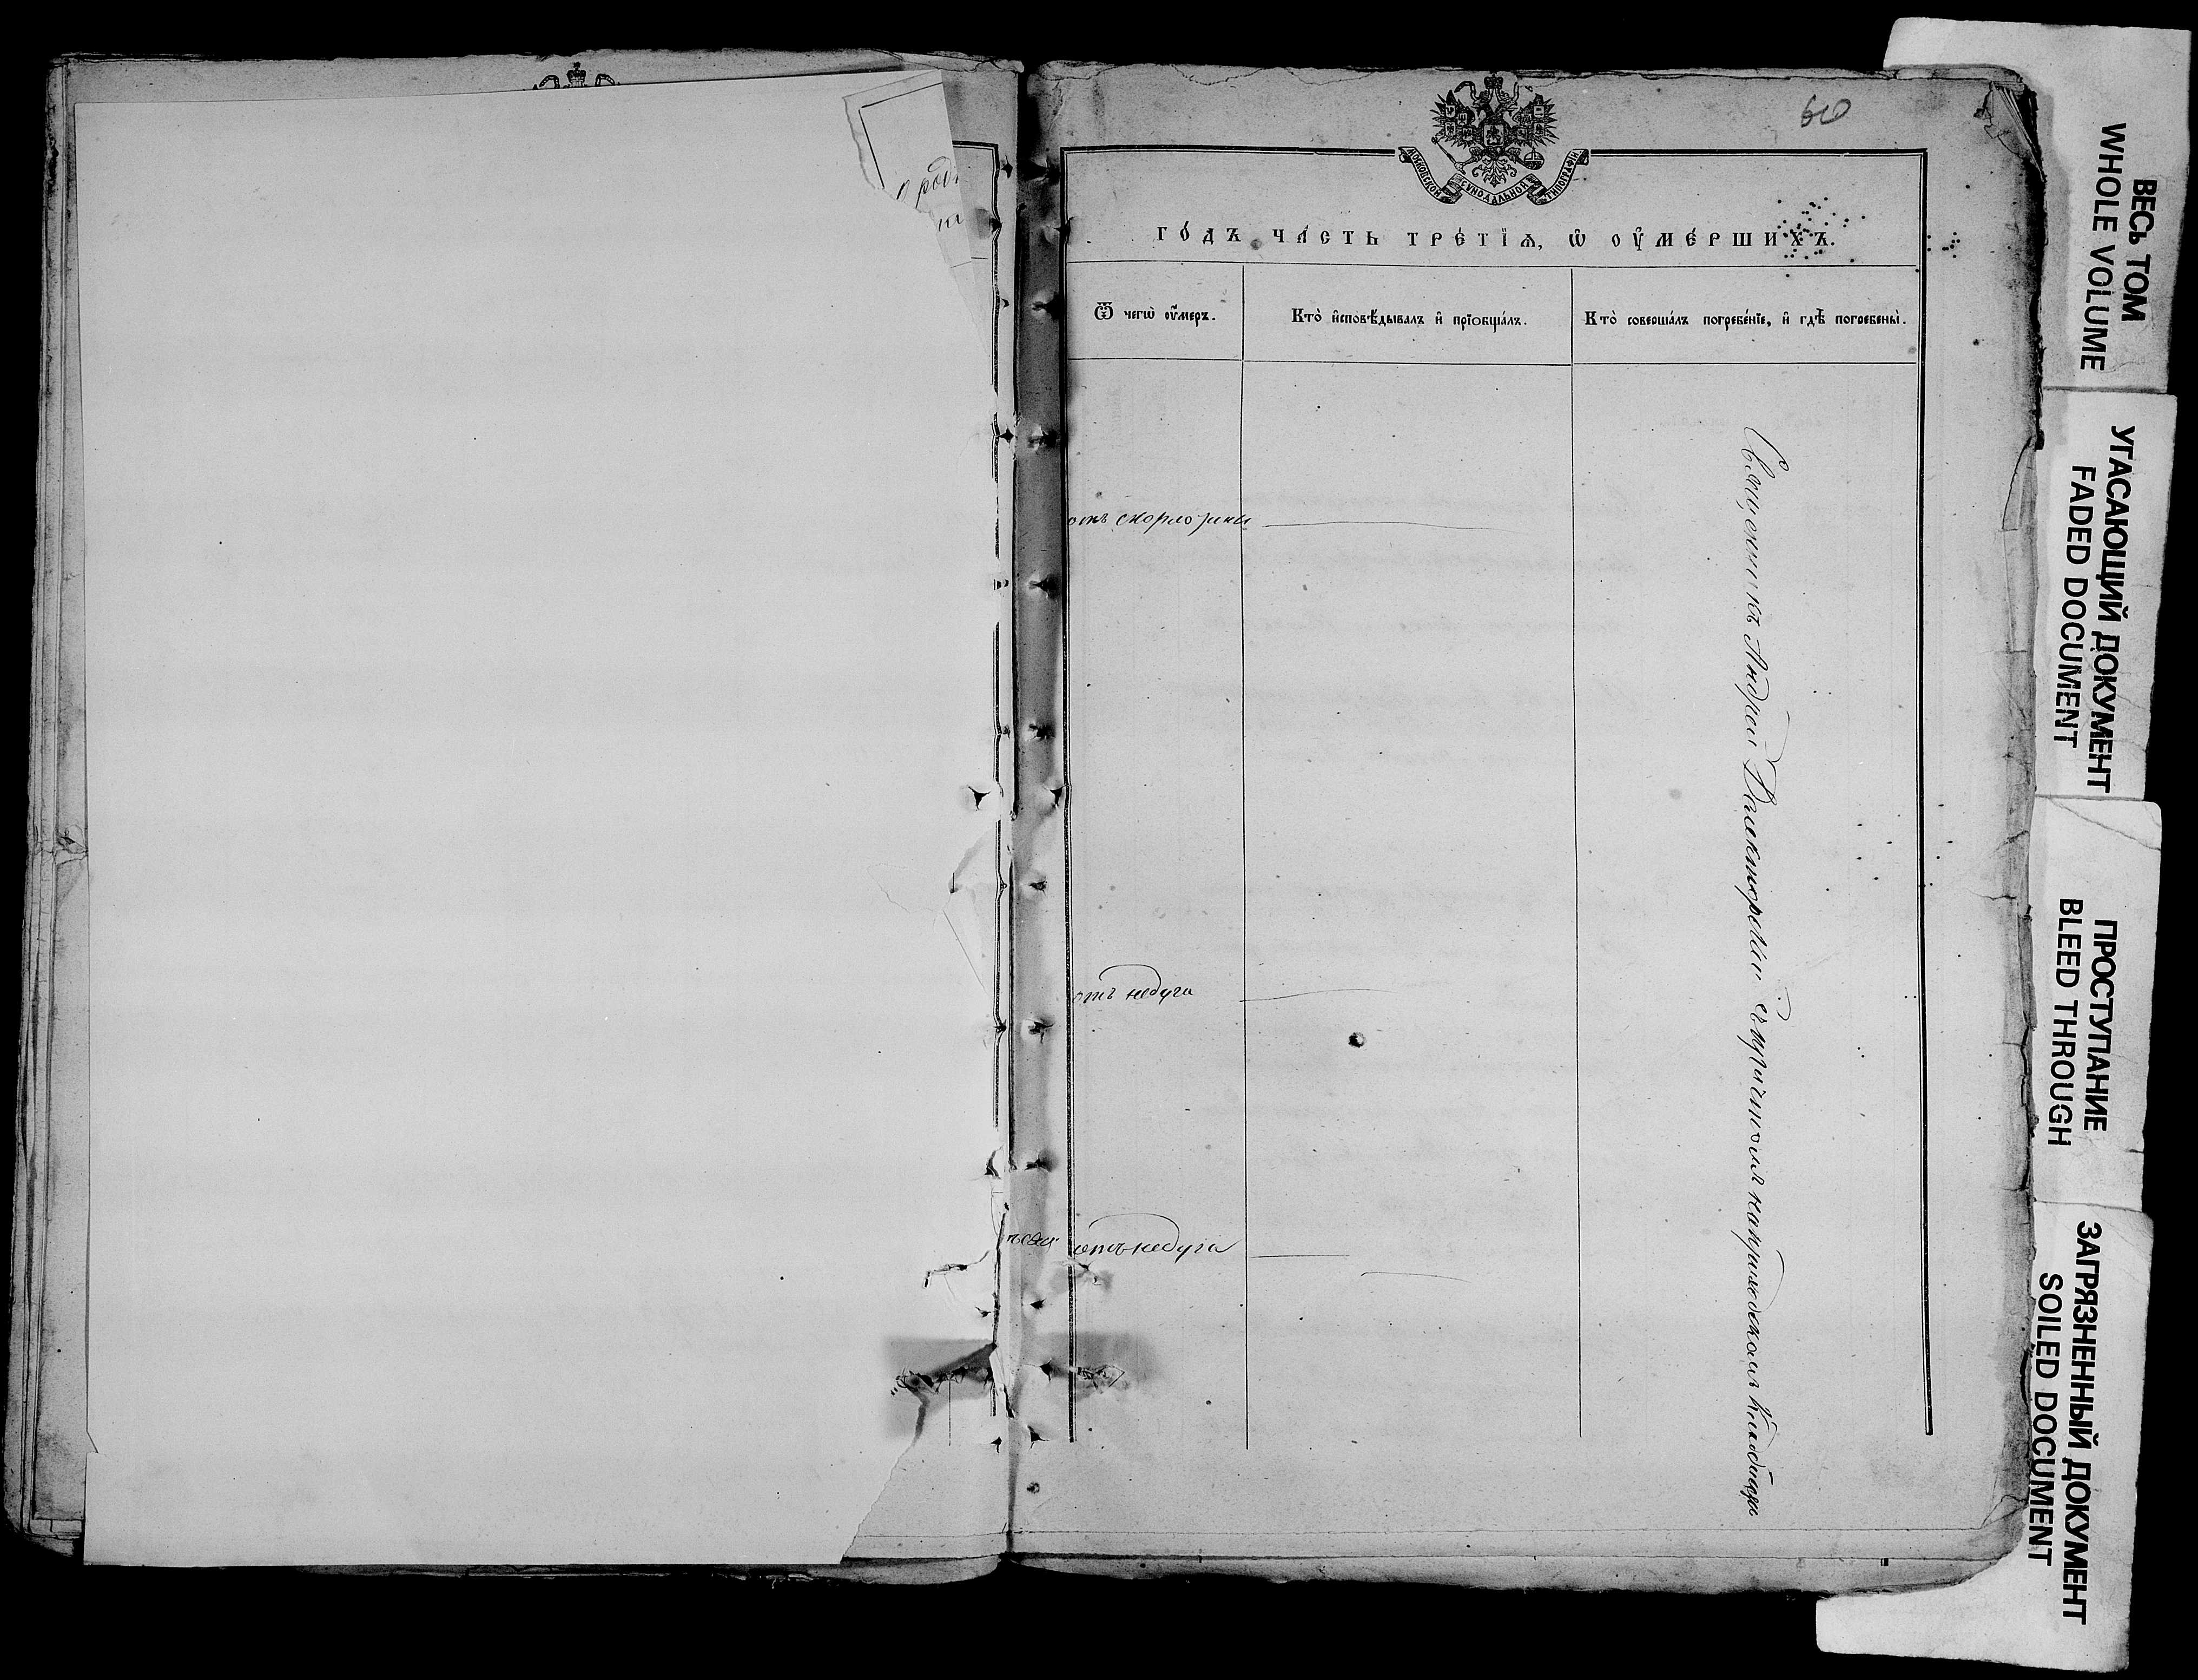 60
МОСКОВСКОЙ СѴНОДАЛЬНОЙ ТИПОГРАФІИ
ГО́ДЪ ЧА́СТЬ ТРЕ́ТЇѦ, Ѡ҆ ОУ҆МЕ́РШИХЪ.
Ѿ чегѡ̀ оу҆́меръ.
Кто̀ и҆сповѣ́дывалъ и҆ прїѡбща́лъ.
Кто̀ соверша́лъ погребе́нїе, и҆ гдѣ̀ погребены̀.
отъ скорлотины
отъ недуга
отъ недуга
Священникъ Андрей съ причтомъ на приходскомъ кладбищѣ
о роди
ВЕСЬ ТОМ
WHOLE VOLUME
УГАСАЮЩИЙ ДОКУМЕНТ
FADED DOCUMENT
ПРОСТУПАНИЕ
BLEED THROUGH
ЗАГРЯЗНЕННЫЙ ДОКУМЕНТ
SOILED DOCUMENT